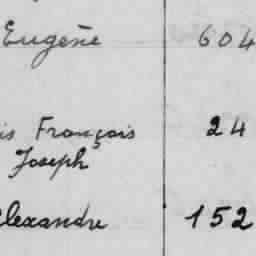 Eugène 604
is François 24
Joseph
lexandre 152